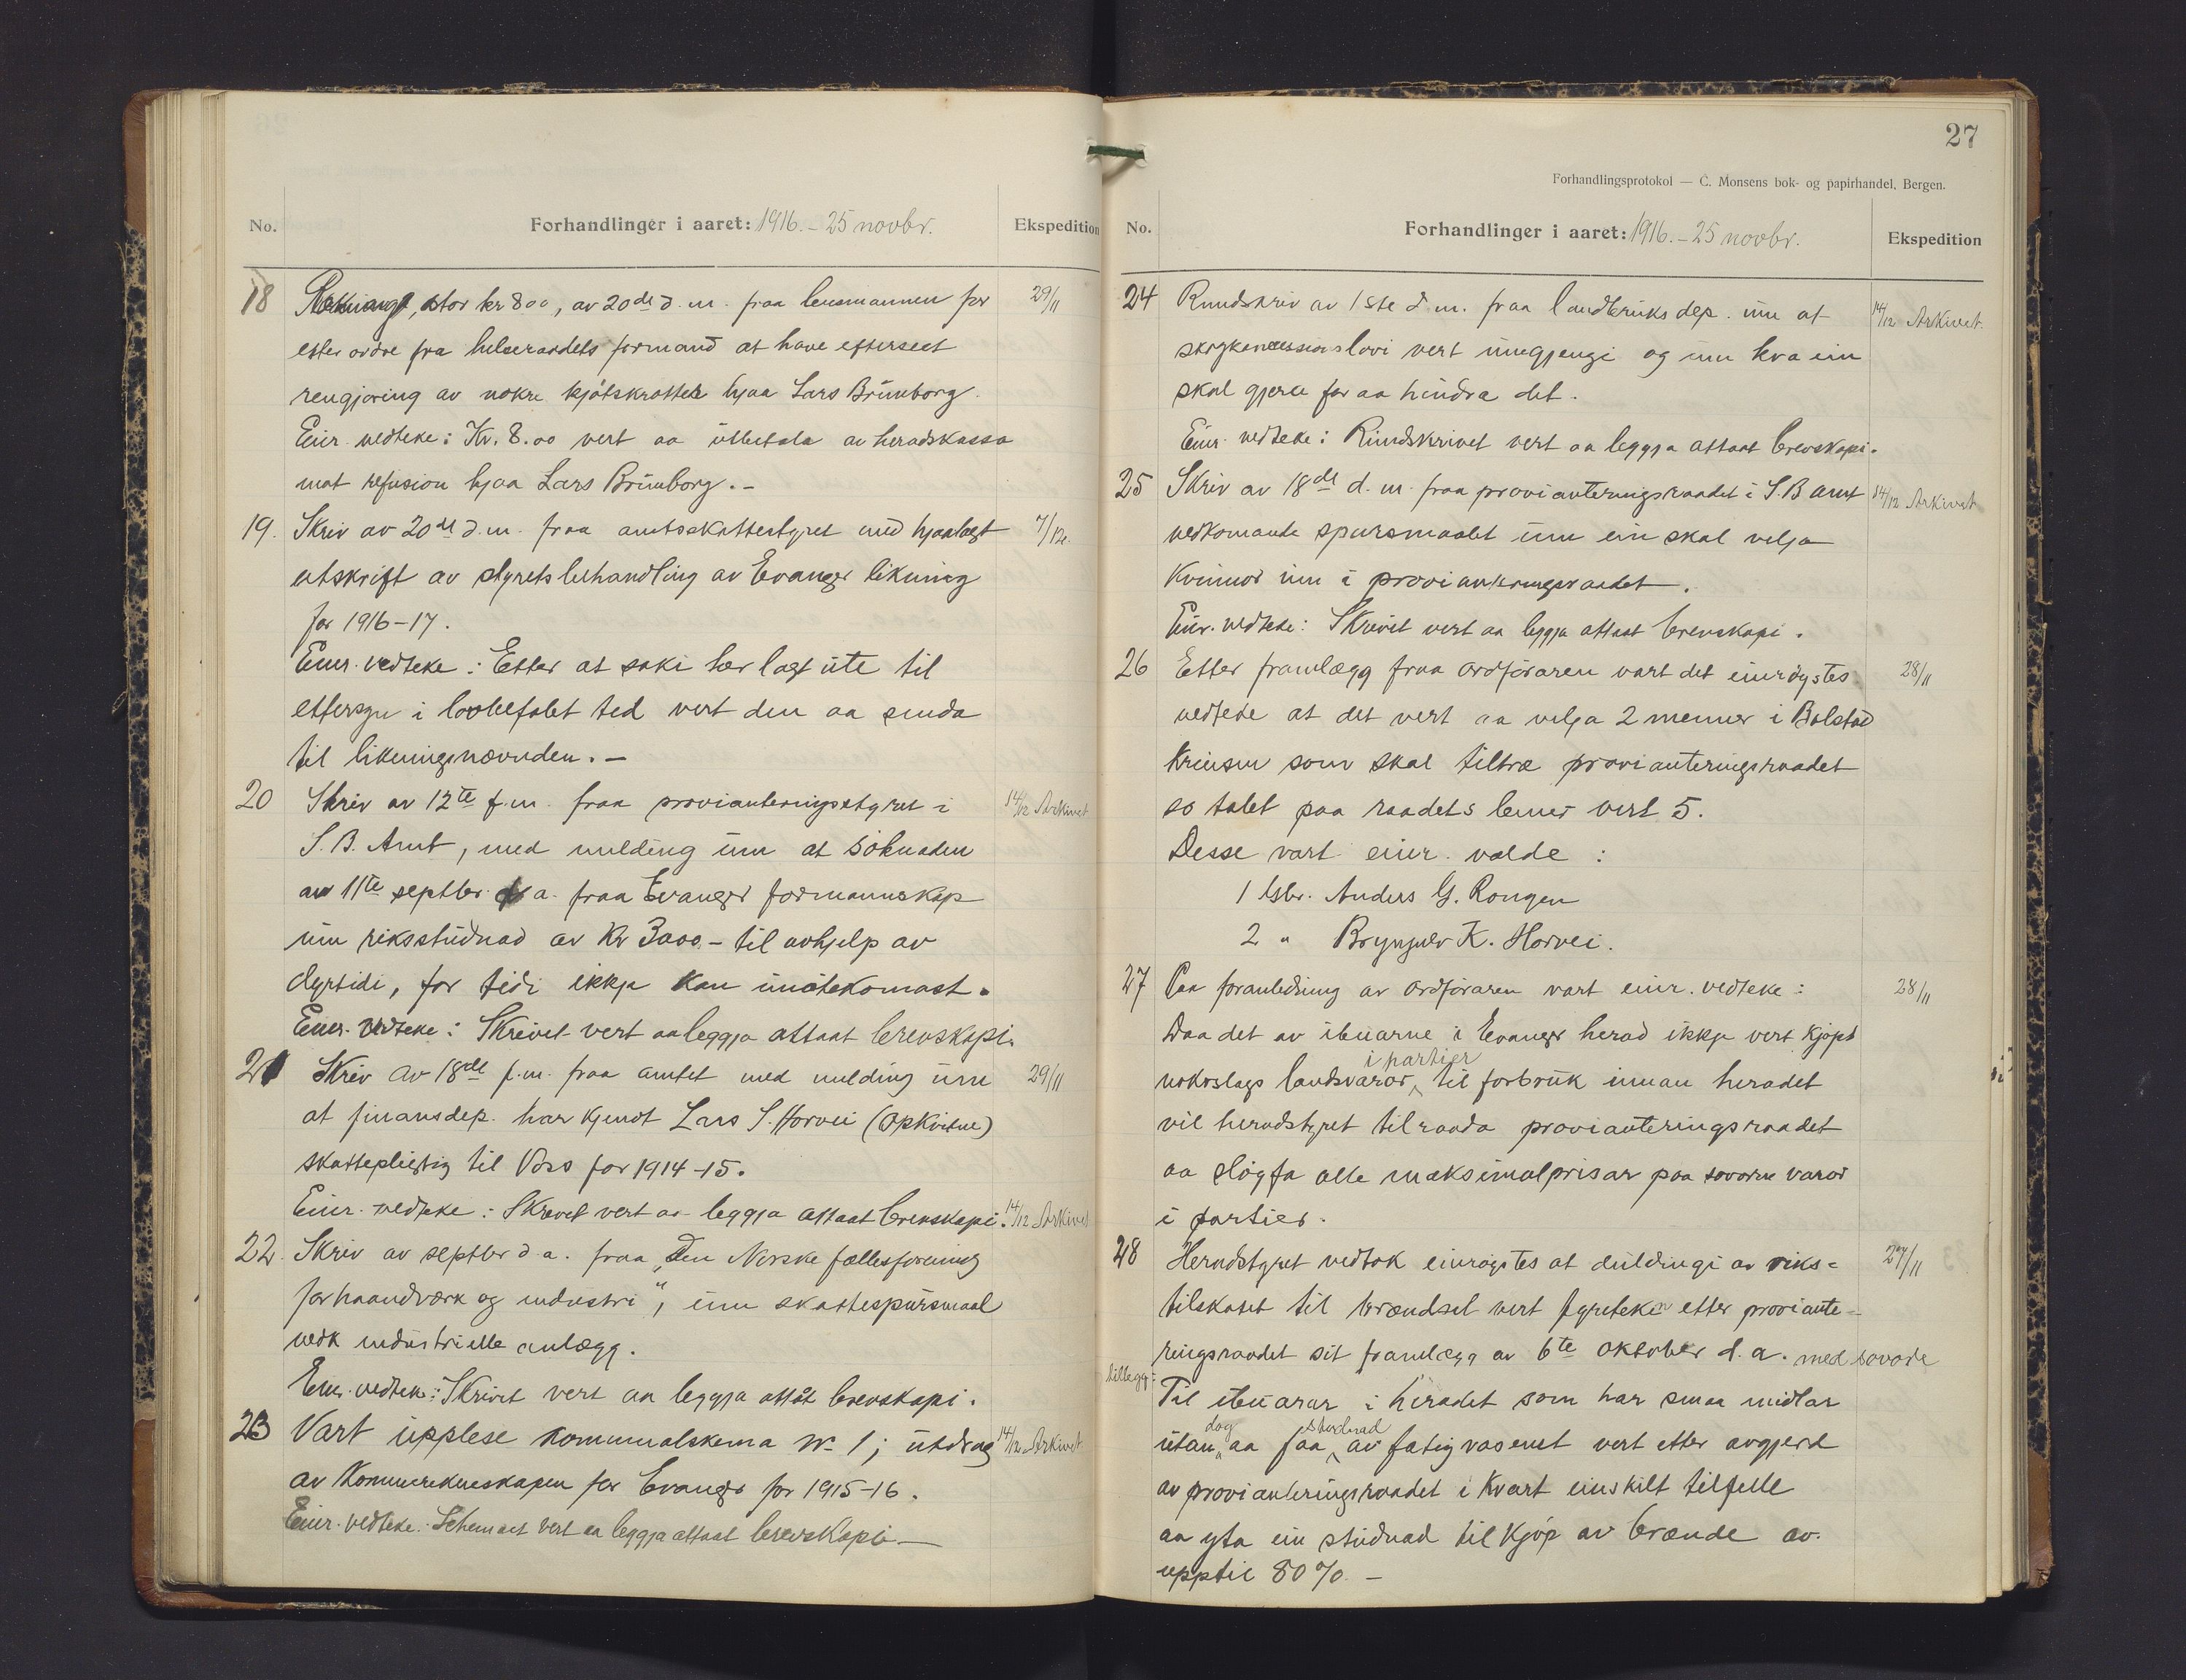 No. Forhandlinger i aaret: 1916. – 25 novbr. Ekspedition
18 Rekning, stor kr 8 00, av 20de d. m. fraa lensmannen for 29/11
etter ordre fra helseraadets formand at have efterseet
rengjøring av nokre kjøtskrotter hjaa Lars Brunborg.
Einr. vedteke: Kr. 8.00 vert aa utbetala av heradskassa
mot refusion hjaa Lars Brunborg. –
19. Skriv av 20de d. m. fraa amtsskattestyret med hjaalagt 7/12.
utskrift av styrets behandling av Evanger likning
for 1916–17.
Einr. vedteke: Etter at saki har lagt ute til
ettersyn i lovbefalet tid vert den aa senda
til likningsnævnden. –
20 Skriv av 12te f. m. fraa provianteringsstyret i 14/12 Arkivet
S. B. Amt, med melding um at søknaden
av 11te septbr. d. a. fraa Evanger formannskap
um riksstudnad av Kr 3000.– til avhjelp av
dyrtidi, for tidi ikkje kan imøtekomast.
Einr. vedteke: Skrivet vert aa leggja attaat brevskapi.
21 Skriv av 18de f. m. fraa amtet med melding um 29/11
at finansdep. har kjendt Lars S. Horvei (Opkvitne)
skattepligtig til Voss for 1914–15.
Einr. vedteke: Skrivet vert aa leggja attaat brevskapi. 14/12 Arkivet
22. Skriv av septbr d. a. fraa „Den Norske fællesforening
for haandværk og industri", um skattespursmaal
vedk industrielle anlægg.
Einr. vedteke: Skrivet vert aa leggja attåt brevskapi.
23 Vart upplese kommunalskema No 1; utdrag 14/12 Arkivet
av Kommunerekneskapen for Evanger for 1915–16.
Einr. vedteke: Schemaet vert aa leggja attaat brevskapi –
27
Forhandlingsprotokol — C. Monsens bok- og papirhandel, Bergen.
No. Forhandlinger i aaret: 1916. – 25 novbr. Ekspedition
24 Rundskriv av 1ste d. m. fraa landbruksdep. um at 14/12 Arkivet.
skogkoncessionslovi vert umgjengi og um kva ein
skal gjera for aa hindra det.
Einr. vedteke: Rundskrivet vert aa leggja attaat brevskapi.
25 Skriv av 18de d. m. fraa provianteringsraadet i S. B amt 14/12 Arkivet
vedkomande spursmaalet um ein skal velja
Kvinnor inn i provianteringsraadet.
Einr. vedteke: Skrivet vert aa leggja attaat brevskapi.
26 Etter framlegg fraa ordføraren vart det einrøystes 28/11
vedteke at det vert aa velja 2 menner i Bolstad
Krinsen som skal tiltræ provianteringsraadet
so talet paa raadets lemer vert 5.
Desse vart einr. valde:
1 Gbr. Anders G. Rongen
2 " Brynjulv K. Horvei.
27 Paa foranledning av ordføraren vart einr. vedteke: 28/11
Daa det av ibuarne i Evanger herad ikkje vert kjøpt
nokoslags landsvaror i partier til forbruk innan heradet
vil heradstyret tilraada provianteringsraadet
aa sløyfa alle maksimalprisar paa sovorne varor
i partier.
28 Heradstyret vedtok einrøystes at duldingi av riks= 27/11
tilskotet til brændsel vert fyreteken etter proviante-
ringsraadet sit framlegg av 6te oktober d. a. med sovore
tillegg:
Til ibuarar i heradet som har smaa midlar
utan dog aa faa studnad av fatigvæsenet vert etter avgjerd
av provianteringsraadet i kvart einskilt tilfelle
aa yta ein studnad til kjøp av brænde av
upptil 80%. –